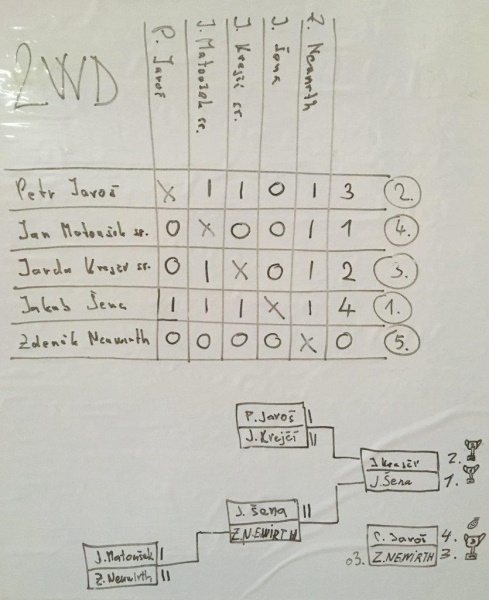 2WD
P. Jaroš
J. Matoušek sr.
J. Krejčí sr.
J. Šena
Z. Neuwirth
Petr Jaroš X 1 1 0 1 3 2.
Jan Matoušek sr. 0 X 0 0 1 1 4.
Jarda Krejčí sr. 0 1 X 0 1 2 3.
Jakub Šena 1 1 1 X 1 4 1.
Zdeněk Neuwirth 0 0 0 0 X 0 5.
P. Jaroš I
J. Krejčí II
J. Krejčí 2.
J. Šena 1.
J. Šena II
Z. NEWIRTH
P. Jaroš 4.
03. Z. NEWIRTH 3.
J. Matoušek I
Z. Neuwirth II